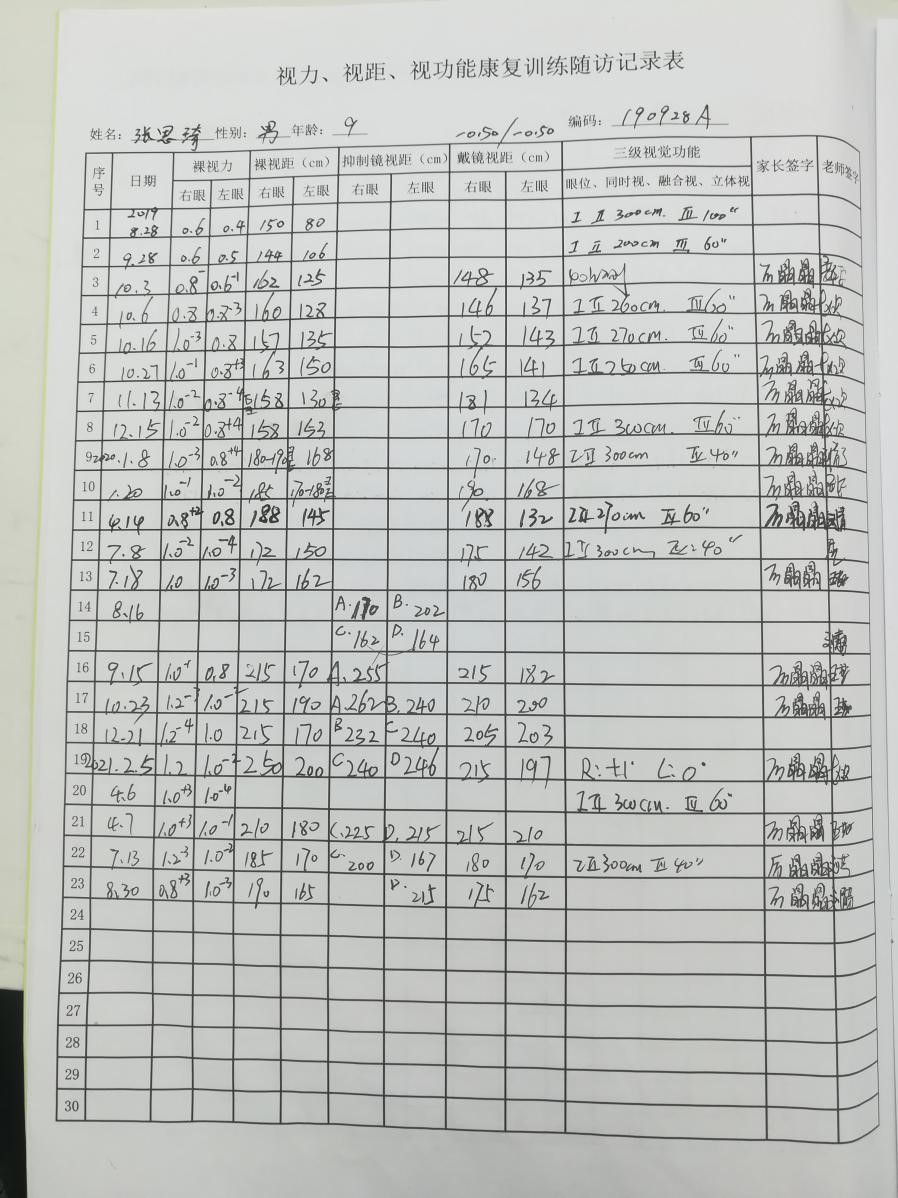 视力、视距、视功能康复训练随访记录表
姓名：张思琦 性别：男 年龄：9 -0.50/-0.50 编码：190928A
序号 日期 裸视力 裸视距（cm） 抑制镜视距（cm） 戴镜视距（cm） 三级视觉功能 家长签字 老师签字
右眼 左眼 右眼 左眼 右眼 左眼 右眼 左眼 眼位、同时视、融合视、立体视
1 2019 8.28 0.6 0.4 150 80 I II 300cm. III 100"
2 9.28 0.6 0.5 144 106 I II 200cm III 60"
3 10.3 0.8⁻ 0.6⁻¹ 162 125 148 135
4 10.6 0.8 0.8⁻³ 160 128 146 137 I II 260cm. III 60"
5 10.16 1.0⁻³ 0.8 157 135 152 143 I II 270cm. III 60"
6 10.27 1.0⁻¹ 0.8⁺³ 163 150 165 141 I II 250cm. III 60"
7 11.13 1.0⁻² 0.8⁻⁴ 158 130 181 134
8 12.15 1.0⁻² 0.8⁺⁴ 158 153 170 170 I II 300cm. III 60"
9 2020.1.8 1.0⁻³ 0.8⁺⁴ 180-190 168 170 148 I II 300cm III 40"
10 1.20 1.0⁻¹ 1.0⁻² 185 170-180 190 168
11 4.14 0.8⁺² 0.8 188 145 188 132 I II 270cm III 60"
12 7.8 1.0⁻² 1.0⁻⁴ 172 150 175 142 I II 300cm 40"
13 7.18 1.0 1.0⁻³ 172 162 180 156
14 8.16 A.170 B.202
15 C.162 D.164
16 9.15 1.0⁻¹ 0.8 215 170 A.255 215 182
17 10.23 1.2⁻³ 1.0⁻ 215 190 A.262 B.240 210 200
18 12.21 1.2⁻⁴ 1.0 215 170 B 232 C 240 205 203
19 2021.2.5 1.2 1.0⁻² 250 200 C 240 D 246 215 197 R:+1° L:0°
20 4.6 1.0⁺³ 1.0⁻⁴ I II 300cm. III 60"
21 4.7 1.0⁺³ 1.0⁻¹ 210 180 C.225 D.215 215 210
22 7.13 1.2⁻³ 1.0⁻² 185 170 C.200 D.167 180 170 I II 300cm III 40"
23 8.30 0.8⁺³ 1.0⁻³ 190 165 D.215 175 162
24
25
26
27
28
29
30